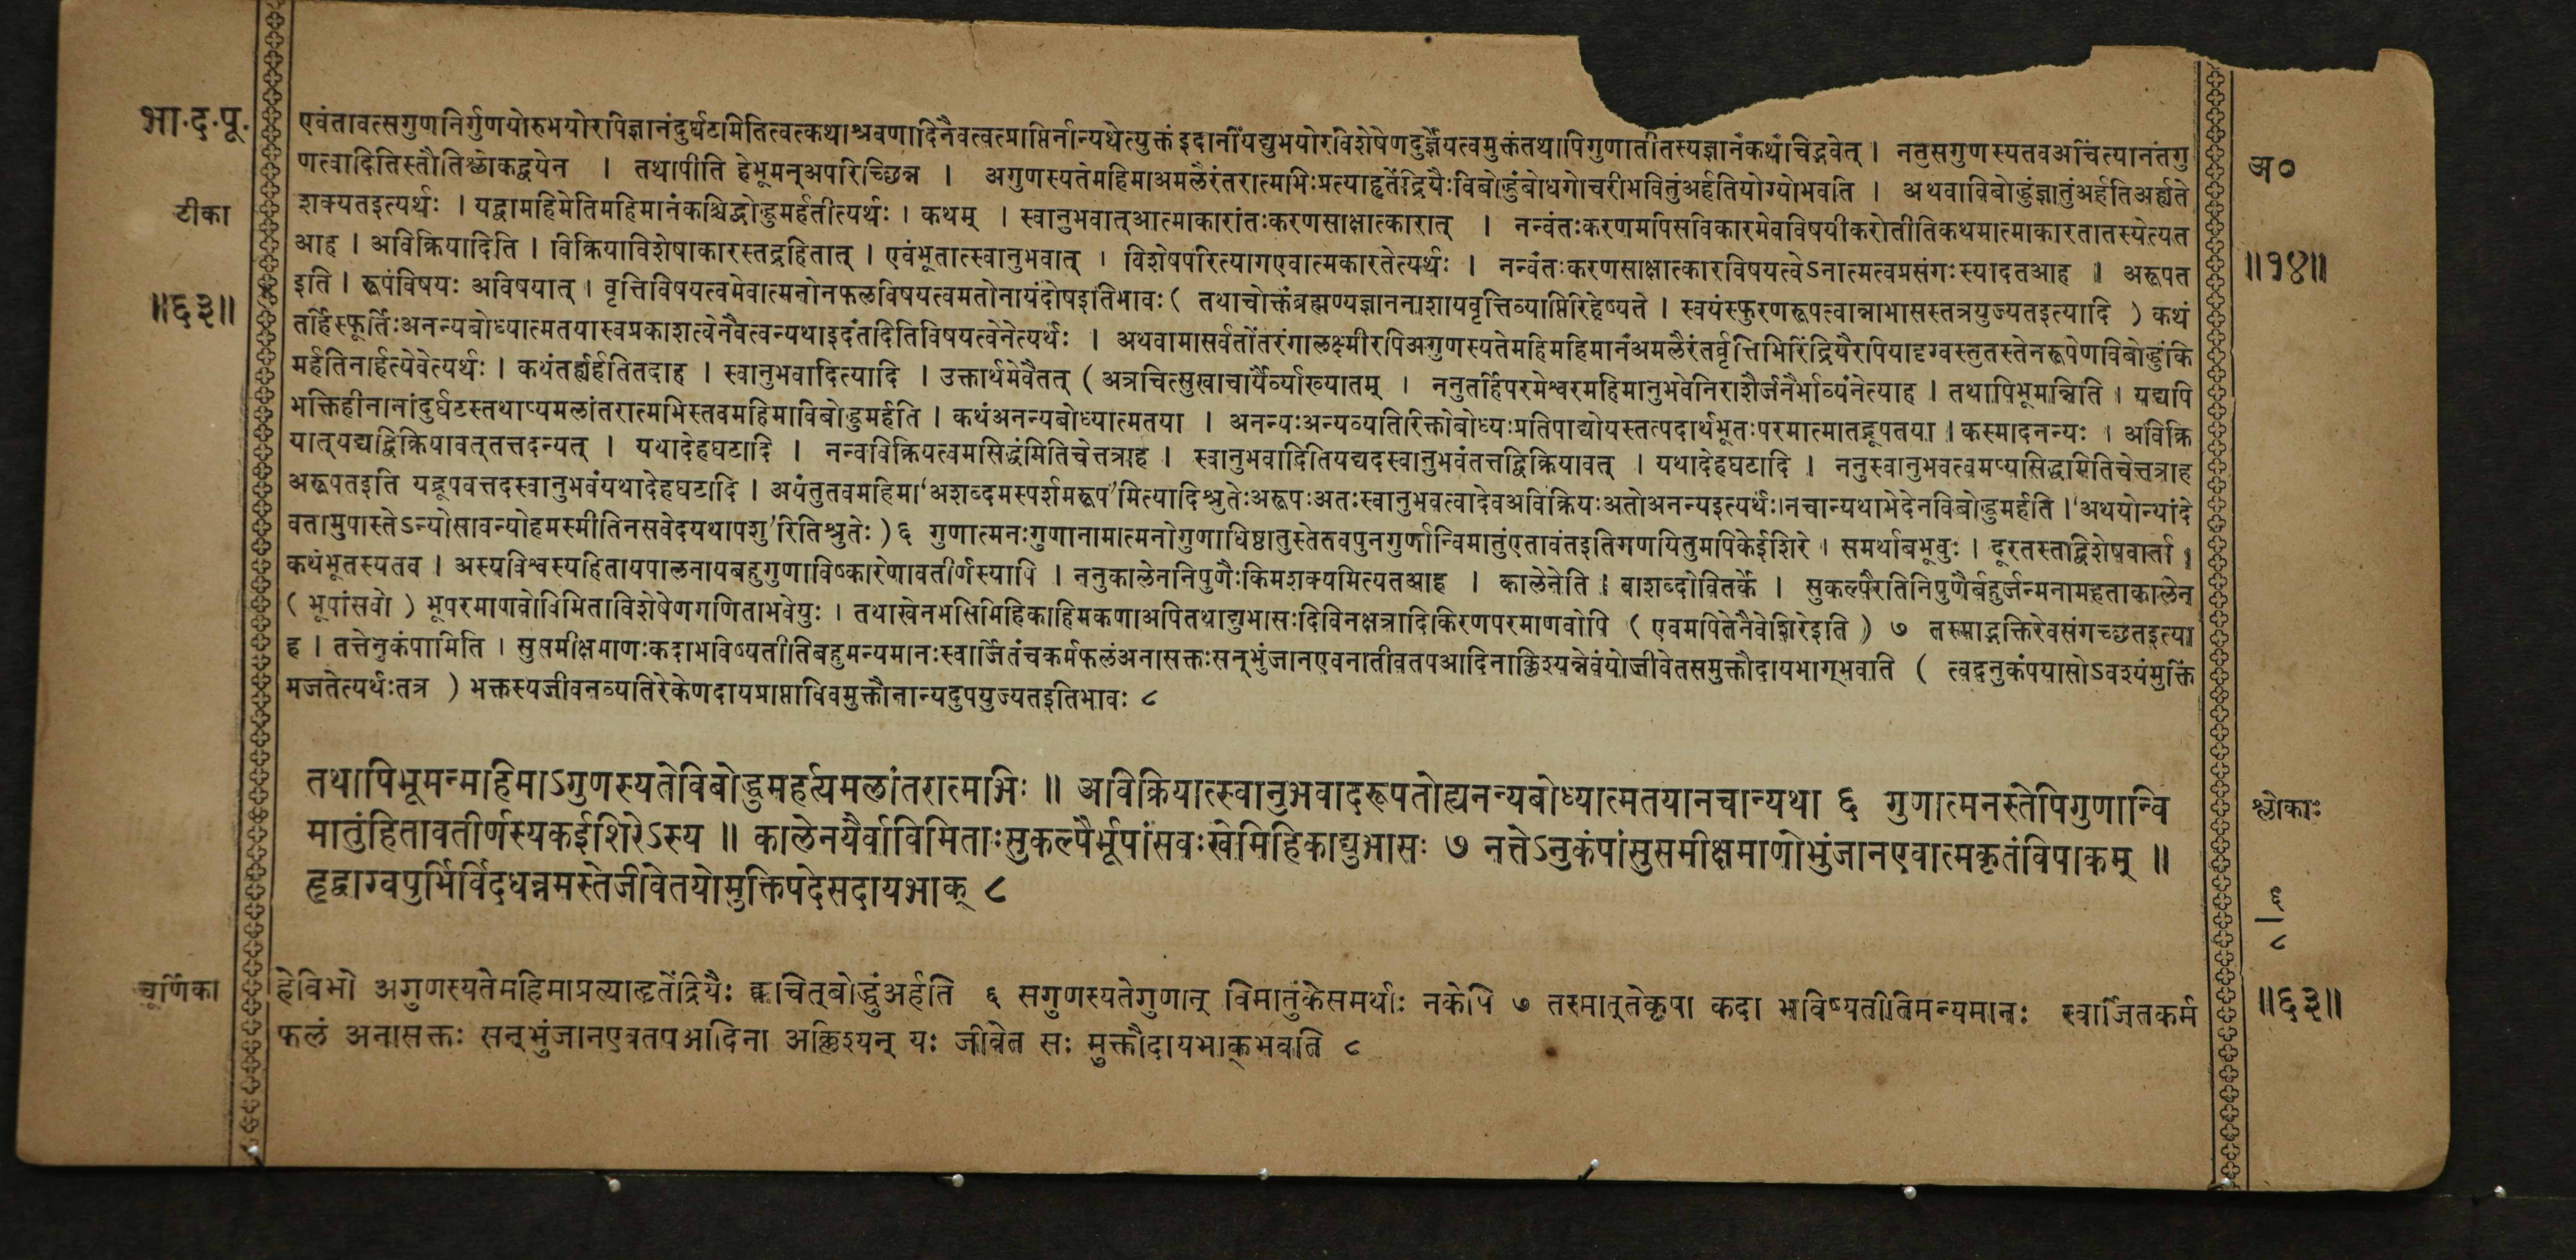 भा.द.पू.
एवंतावत्सगुणनिर्गुणयोरुभयोरपिज्ञानंदुर्घटमितित्वत्कथाश्रवणादिनैवत्वत्प्राप्तिर्नान्यथेत्युक्तं इदानींयद्युभयोरविशेषेणदुर्ज्ञेयत्वमुक्तंतथापिगुणातीतस्यज्ञानंकथंचिद्भवेत् । नतुसगुणस्यतवअचिंत्यानंतगु
अ०
णत्वादितिस्तौतिश्लोकद्वयेन । तथापीति हेभूमन्अपरिच्छिन्न । अगुणस्यतेमहिमाअमलैरंतरात्मभिःप्रत्याहृतेंद्रियैःविबोद्धुंबोधगोचरीभवितुंअर्हतियोग्योभवति । अथवाविबोद्धुंज्ञातुंअर्हतिअर्ह्यते
टीका
शक्यतइत्यर्थः । यद्वामहिमेतिमहिमानंकश्चिद्बोद्धुमर्हतीत्यर्थः । कथम् । स्वानुभवात्आत्माकारांतःकरणसाक्षात्कारात् । नन्वंतःकरणमपिसविकारमेवविषयीकरोतीतिकथमात्माकारतातस्येत्यत
आह । अविक्रियादिति । विक्रियाविशेषाकारस्तद्रहितात् । एवंभूतात्स्वानुभवात् । विशेषपरित्यागएवात्मकारतेत्यर्थः । नन्वंतःकरणसाक्षात्कारविषयत्वेऽनात्मत्वप्रसंगःस्यादतआह । अरूपत
॥१४॥
इति । रूपंविषयः अविषयात् । वृत्तिविषयत्वमेवात्मनोनफलविषयत्वमतोनायंदोषइतिभावः ( तथाचोक्तंब्रह्मण्यज्ञाननाशायवृत्तिव्याप्तिरिहेष्यते । स्वयंस्फुरणरूपत्वान्नाभासस्तत्रयुज्यतइत्यादि ) कथं
॥६३॥
तर्हिस्फूर्तिःअनन्यबोध्यात्मतयास्वप्रकाशत्वेनैवत्वन्यथाइदंतदितिविषयत्वेनेत्यर्थः । अथवामासर्वतोंतरंगालक्ष्मीरपिअगुणस्यतेमहिमहिमानंअमलैरंतर्वृत्तिभिरिंद्रियैरपियादृग्वस्तुतस्तेनरूपेणविबोद्धुंकि
मर्हतिनार्हत्येवेत्यर्थः । कथंतर्ह्यर्हतितदाह । स्वानुभवादित्यादि । उक्तार्थमेवैतत् ( अत्रचित्सुखाचार्यैर्व्याख्यातम् । ननुतर्हिपरमेश्वरमहिमानुभवेनिराशैर्जनैर्भाव्यंनेत्याह । तथापिभूमन्निति । यद्यपि
भक्तिहीनानांदुर्घटस्तथाप्यमलांतरात्मभिस्तवमहिमाविबोद्धुमर्हति । कथंअनन्यबोध्यात्मतया । अनन्यःअन्यव्यतिरिक्तोबोध्यःप्रतिपाद्योयस्तत्पदार्थभूतःपरमात्मातद्रूपतया । कस्मादनन्यः । अविक्रि
यात्यद्यद्विक्रियावत्तत्तदन्यत् । यथादेहघटादि । नन्वविक्रियत्वमसिद्धंमितिचेत्तत्राह । स्वानुभवादितियद्यदस्वानुभवंतत्तद्विक्रियावत् । यथादेहघटादि । ननुस्वानुभवत्वमप्यसिद्धमितिचेत्तत्राह
अरूपतइति यद्रूपवत्तदस्वानुभवंयथादेहघटादि । अयंतुतवमहिमा‘अशब्दमस्पर्शमरूप’मित्यादिश्रुतेःअरूपःअतःस्वानुभवत्वादेवअविक्रियःअतोअनन्यइत्यर्थः।नचान्यथाभेदेनविबोद्धुमर्हति ।‘अथयोन्यांदे
वतामुपास्तेऽन्योसावन्योहमस्मीतिनसवेदयथापशु’रितिश्रुतेः ) ६ गुणात्मनःगुणानामात्मनोगुणाधिष्ठातुस्तेतवपुनर्गुणान्विमातुंएतावंतइतिगणयितुमपिकेईशिरे । समर्थाबभूवुः । दूरतस्तद्विशेषवार्ता ।
कथंभूतस्यतव । अस्यविश्वस्यहितायपालनायबहुगुणाविष्कारेणावतीर्णस्यापि । ननुकालेननिपुणैःकिमशक्यमित्यतआह । कालेनेति । वाशब्दोवितर्के । सुकल्पैरतिनिपुणैर्बहुर्जन्मनामहताकालेन
( भूपांसवो ) भूपरमाणवोविमिताविशेषेणगणिताभवेयुः । तथाखेनभसिमिहिकाहिमकणाअपितथाद्युभासःदिविनक्षत्रादिकिरणपरमाणवोपि ( एवमपितेनैवेशिरेइति ) ७ तस्माद्भक्तिरेवसंगच्छतइत्या
ह । तत्तेनुकंपामिति । सुसमीक्षमाणःकदाभविष्यतीतिबहुमन्यमानःस्वार्जितंचकर्मफलंअनासक्तःसन्भुंजानएवनातीवतपआदिनाक्लिश्यन्नेवंयोजीवेतसमुक्तौदायभाग्भवति ( त्वदनुकंपयासोऽवश्यंमुक्तिं
मजतेत्यर्थःतत्र ) भक्तस्यजीवनव्यतिरेकेणदायप्राप्ताविवमुक्तौनान्यदुपयुज्यतइतिभावः ८
तथापिभूमन्महिमाऽगुणस्यतेविबोद्धुमर्हत्यमलांतरात्मभिः ॥ अविक्रियात्स्वानुभवादरूपतोह्यनन्यबोध्यात्मतयानचान्यथा ६ गुणात्मनस्तेपिगुणान्वि
श्लोकाः
मातुंहितावतीर्णस्यकईशिरेऽस्य ॥ कालेनयैर्वाविमिताःसुकल्पैर्भूपांसवःखेमिहिकाद्युभासः ७ नत्तेऽनुकंपांसुसमीक्षमाणोभुंजानएवात्मकृतंविपाकम् ॥
हृद्वाग्वपुर्भिर्विदधन्नमस्तेजीवेतयोमुक्तिपदेसदायभाक् ८
६
८
चूर्णिका
हेविभो अगुणस्यतेमहिमाप्रत्याहृतेंद्रियैः क्वचित्बोद्धुंअर्हति ६ सगुणस्यतेगुणान् विमातुंकेसमर्थाः नकेपि ७ तस्मात्तेकृपा कदा भविष्यतीतिमन्यमानः स्वार्जितकर्म
॥६३॥
फलं अनासक्तः सन्भुंजानएवतपआदिना अक्लिश्यन् यः जीवेत सः मुक्तौदायभाक्भवति ८